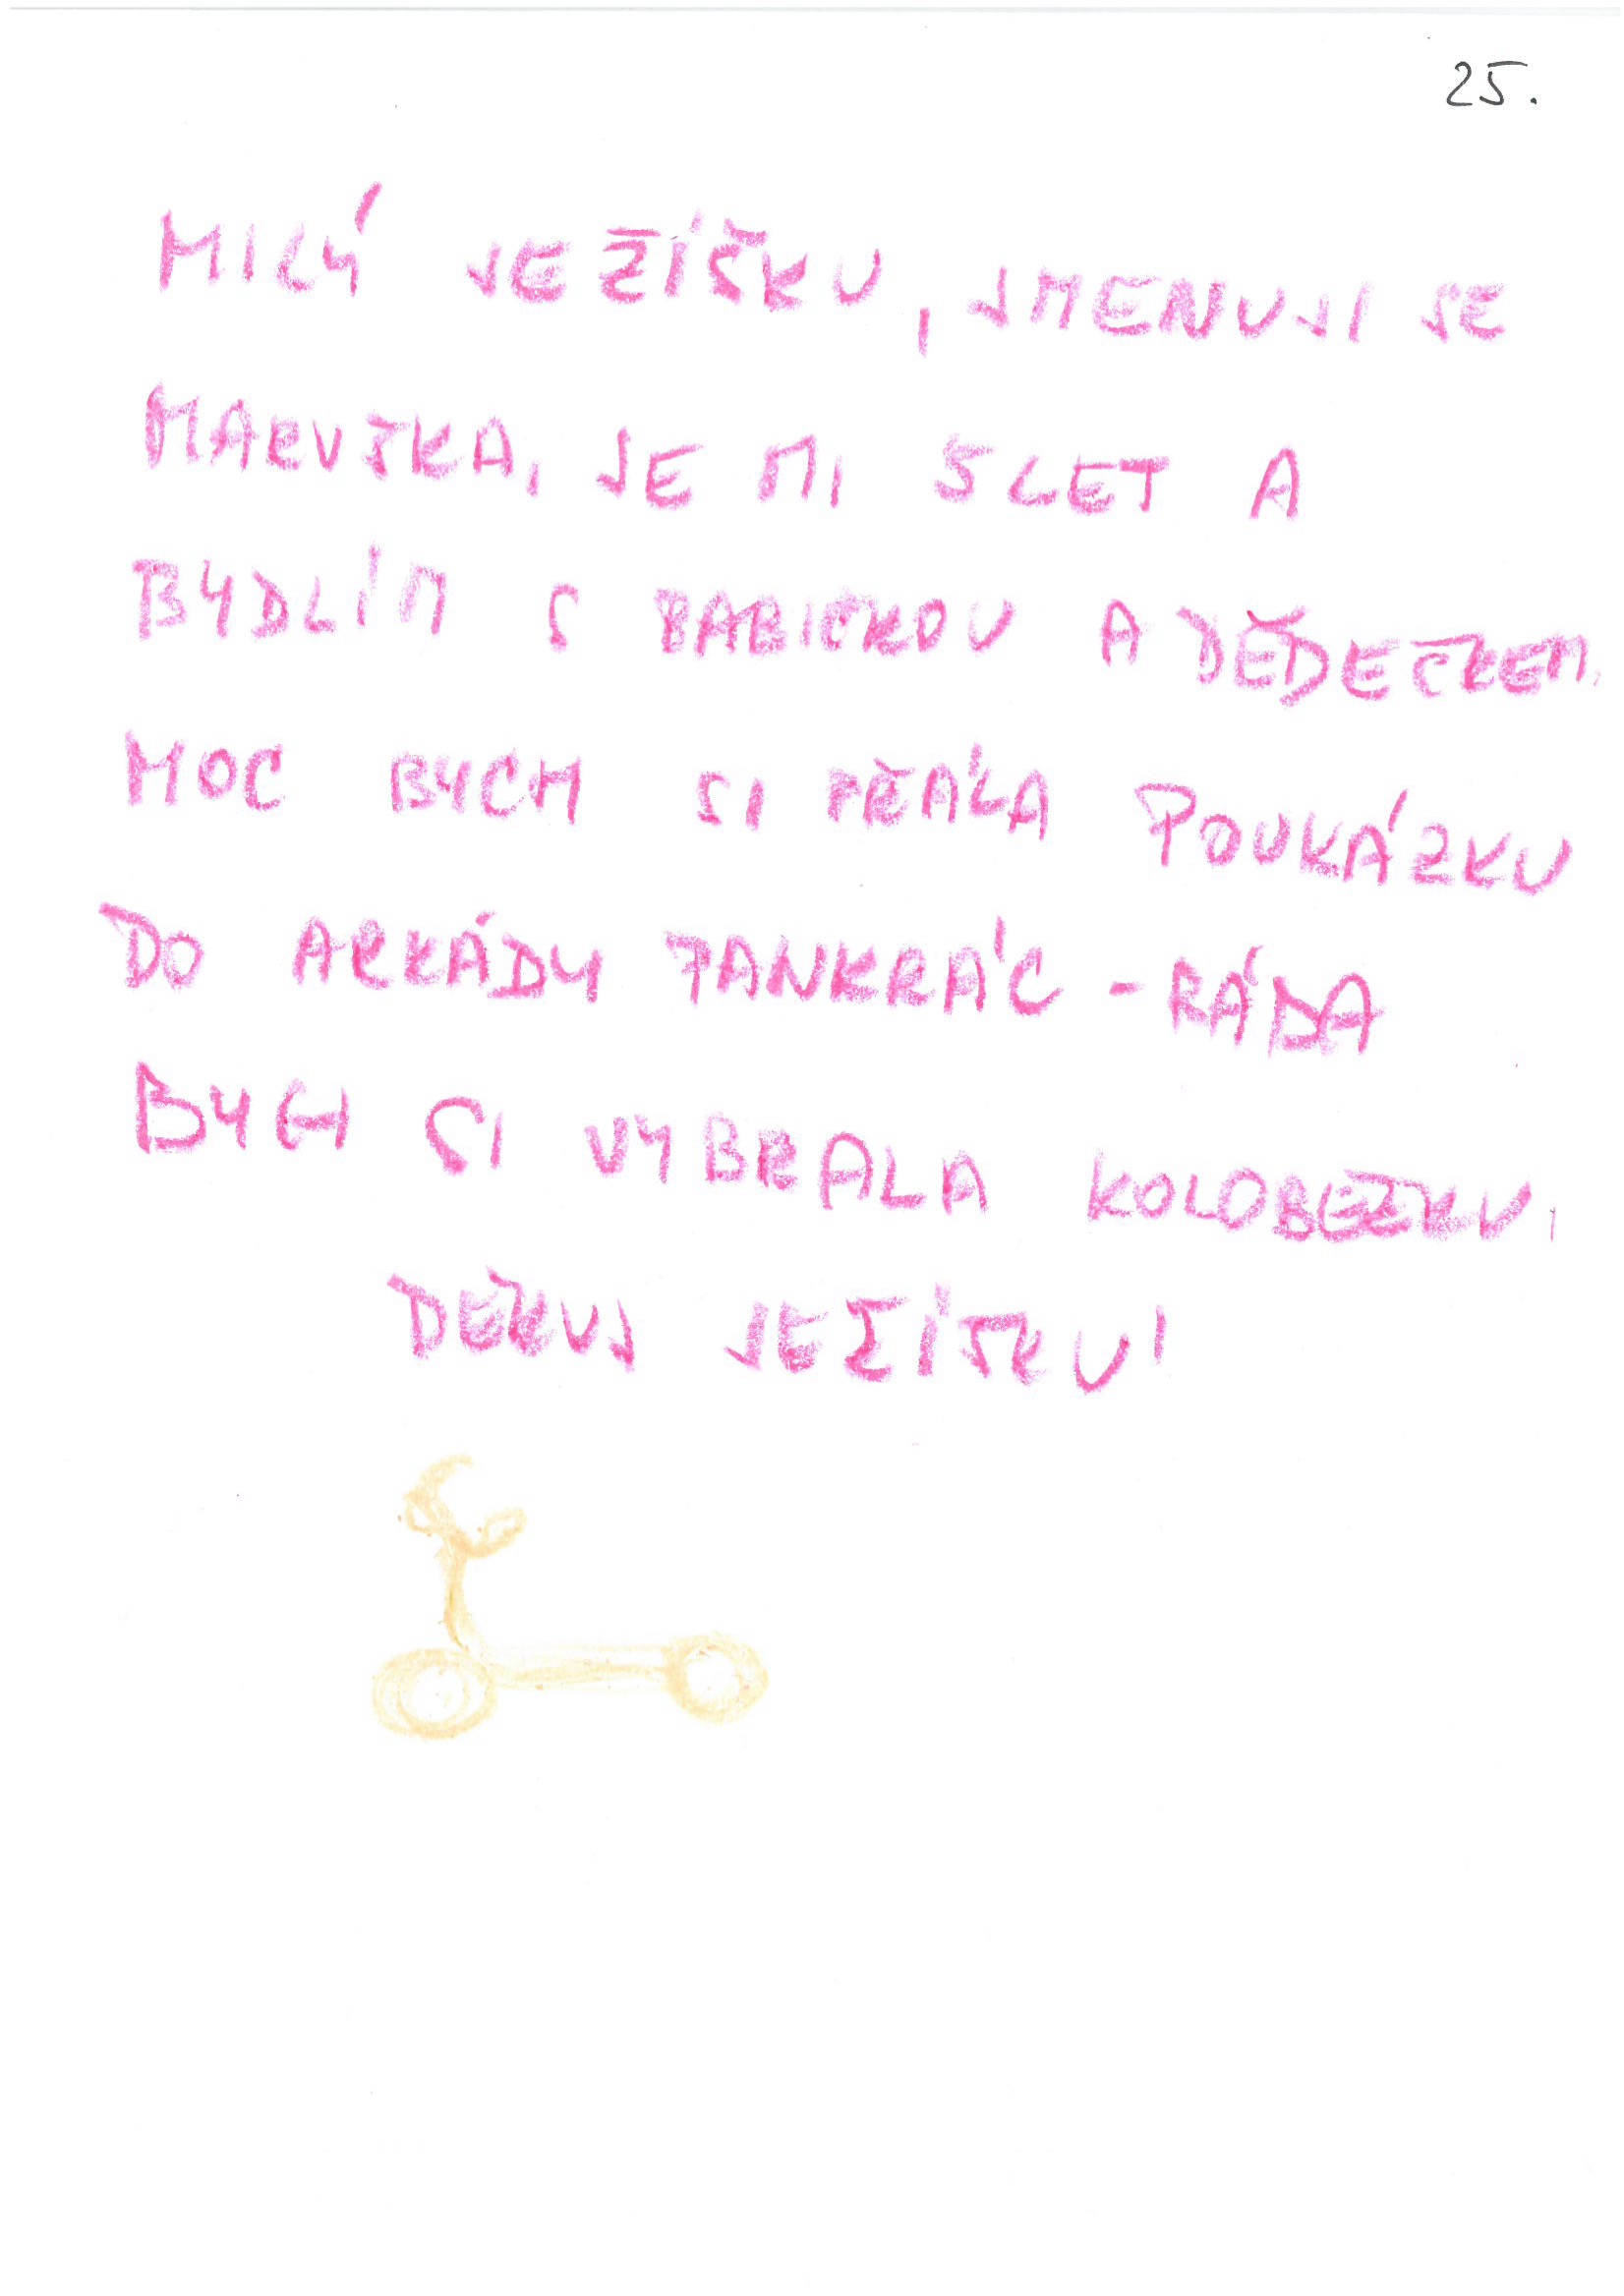 25.
MILÝ JEŽÍŠKU, JMENUJI SE
MARUŠKA, JE MI 5 LET A
BYDLÍM S BABIČKOU A DĚDEČKEM.
MOC BYCH SI PŘÁLA POUKÁZKU
DO ARKÁDY PANKRÁC - RÁDA
BYCH SI VYBRALA KOLOBĚŽKU.
DĚKUJ JEŽÍŠKU!